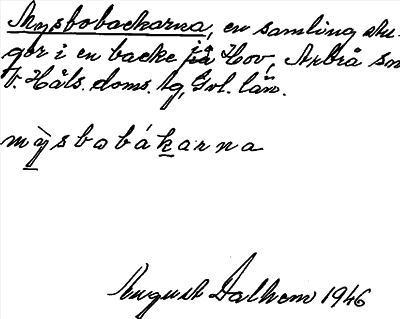 Mysbobackarna, en samling stu-
gor i en backe på Hov, Arbrå sn
V. Häls. doms. tg, Gvl. län.
mỳsbobákarna
August Dalhem 1946